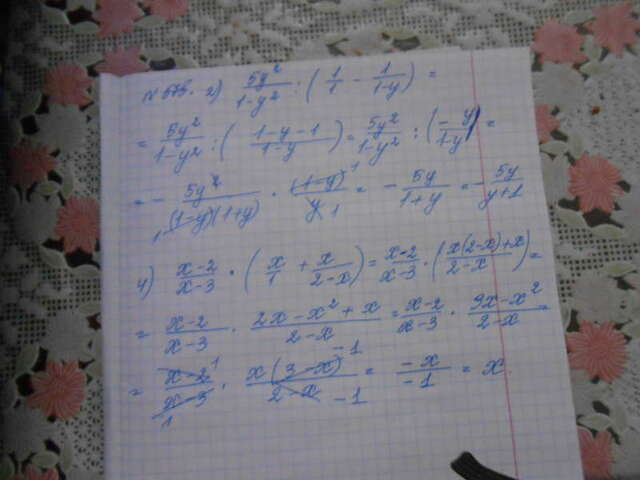 N 575. 2) 5y²/1-y² : (1/1 - 1/1-y) =
= 5y²/1-y² : (1-y-1/1-y) = 5y²/1-y² : (-y/1-y) =
= - 5y²/(1-y)(1+y) · (1-y)/y = - 5y/1+y = - 5y/y+1
4) x-2/x-3 · (x/1 + x/2-x) = x-2/x-3 · (x(2-x)+x/2-x) =
= x-2/x-3 · 2x-x²+x/2-x = x-2/x-3 · 3x-x²/2-x =
= x-2/x-3 · x(3-x)/2-x = -x/-1 = x